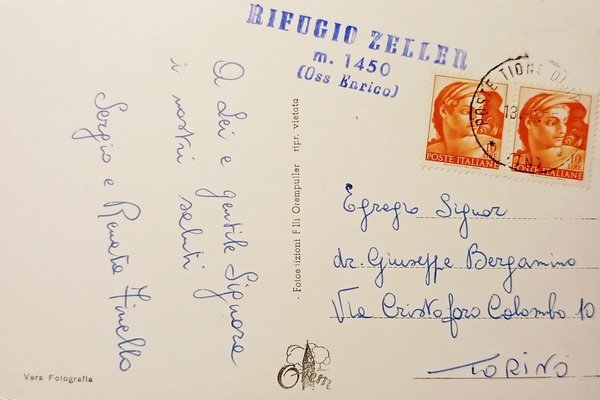 RIFUGIO ZELLER
m. 1450
(Oss Enrico)
A Lei e gentile Signora
i nostri saluti
Sergio e Renata Finello
- Fotoedizioni F.lli Orempuller ripr. vietata
10
POSTE ITALIANE
10 LIRE
POSTE ITALIANE
POSTE TIONE DI
13
Egregio Signor
dr. Giuseppe Bergamino
Via Cristoforo Colombo 10
TORINO
Vera Fotografia